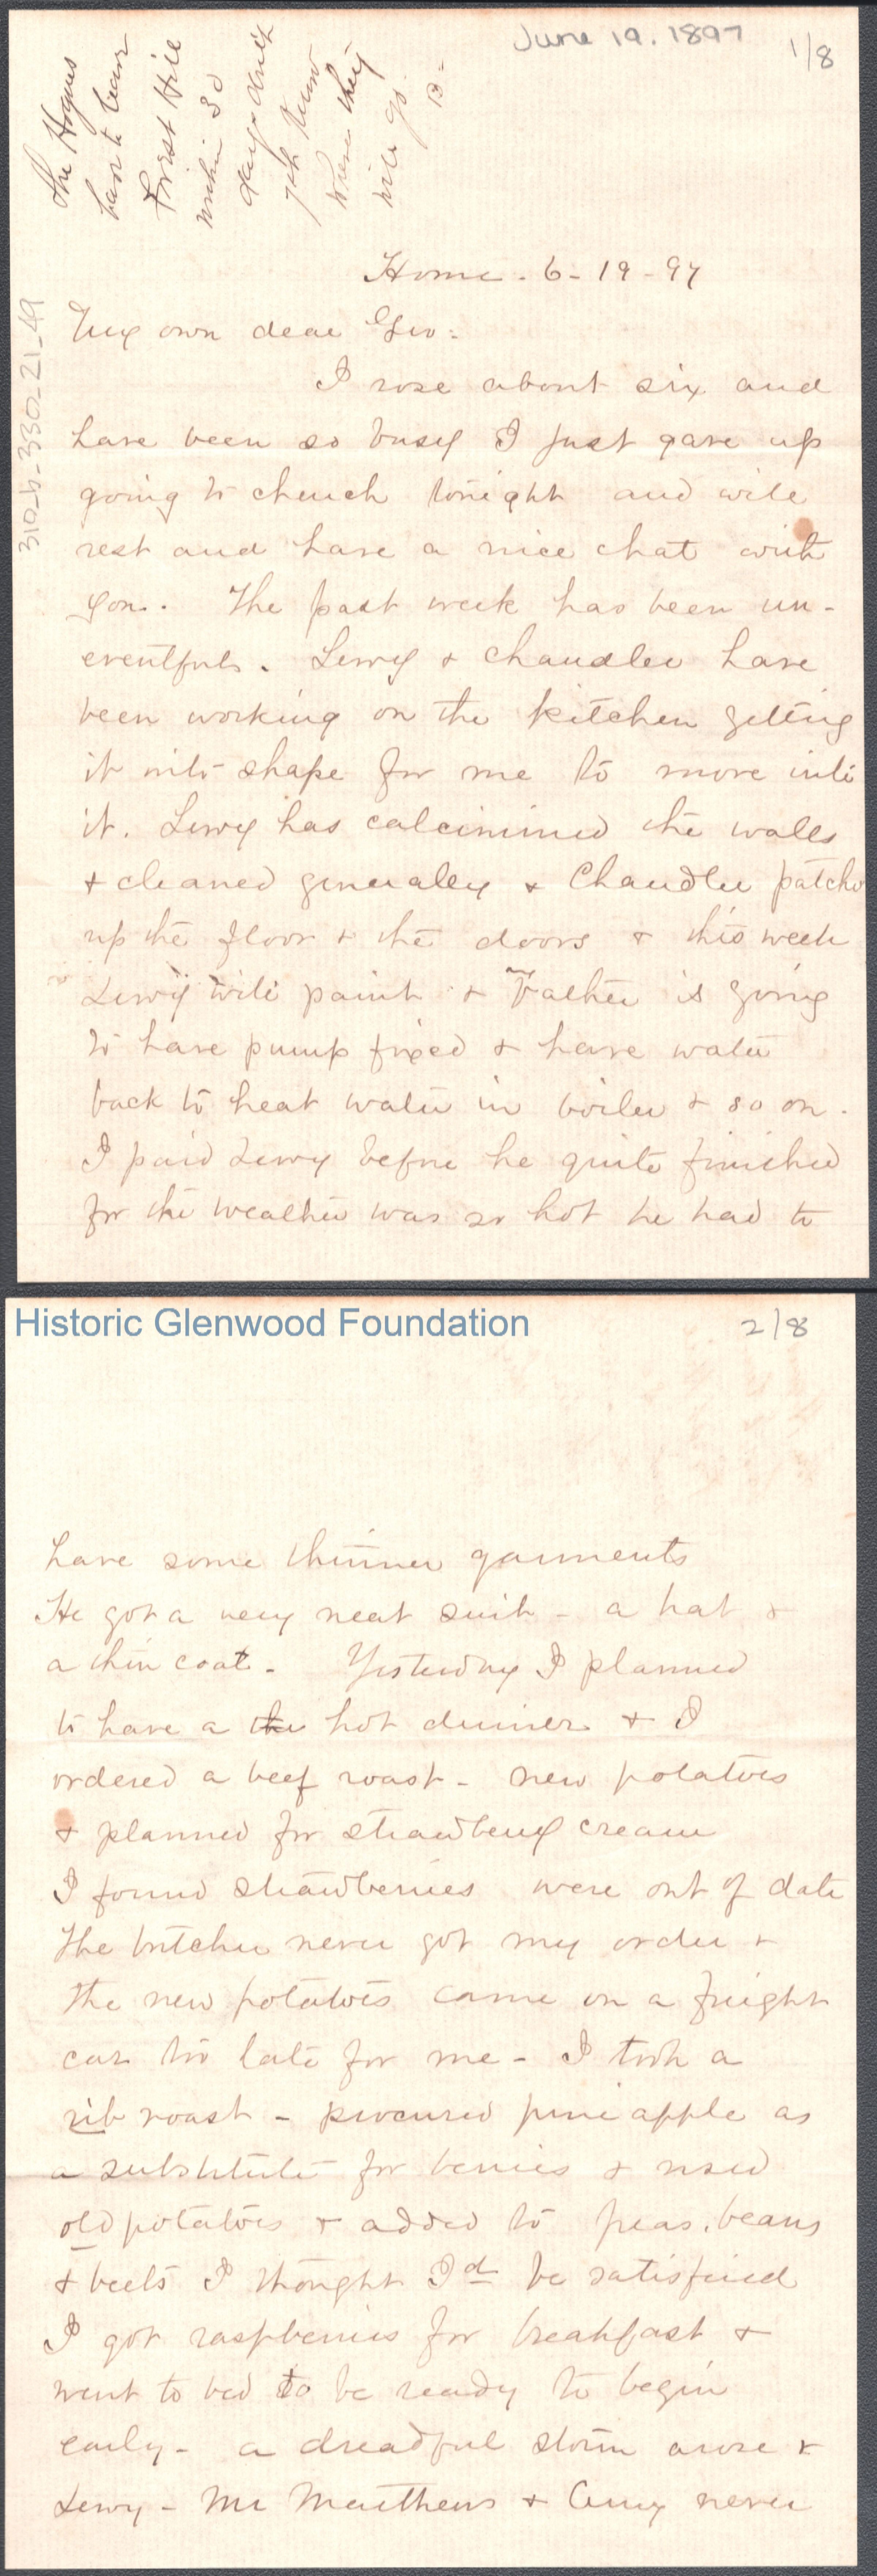 June 19. 1897
1/8
The Hogans
have to leave
Forest Hill
within 30
days - don't
yet know
where they
will go.
B-
310-b-330-21-49
Home - 6 - 19 - 97
My own dear Geo:
I rose about six and
have been so busy I just gave up
going to church tonight and will
rest and have a nice chat with
you. The past week has been un-
eventful. Lewy + Chandler have
been working on the kitchen getting
it into shape for me to move into
it. Lewy has calcimined the walls
+ cleaned generally + Chandler patchd
up the floor + the doors + this week
Lewy will paint + Father is going
to have pump fixed + have water
back to heat water in boiler + so on.
I paid Lewy before he quite finished
for the weather was so hot he had to
Historic Glenwood Foundation
2/8
have some thinner garments
He got a very neat suit - a hat +
a thin coat - Yesterday I planned
to have a the hot dinner + I
ordered a beef roast - new potatoes
+ planned for strawberry cream
I found strawberries were out of date
The butcher never got my order +
the new potatoes came on a freight
car too late for me - I took a
rib roast - procured pine apple as
a substitute for berries + used
old potatoes + added to peas, beans
+ beets I thought I'd be satisfied
I got raspberries for breakfast +
went to bed to be ready to begin
early - a dreadful storm arose +
Lewy - Mr Matthews + Amy never